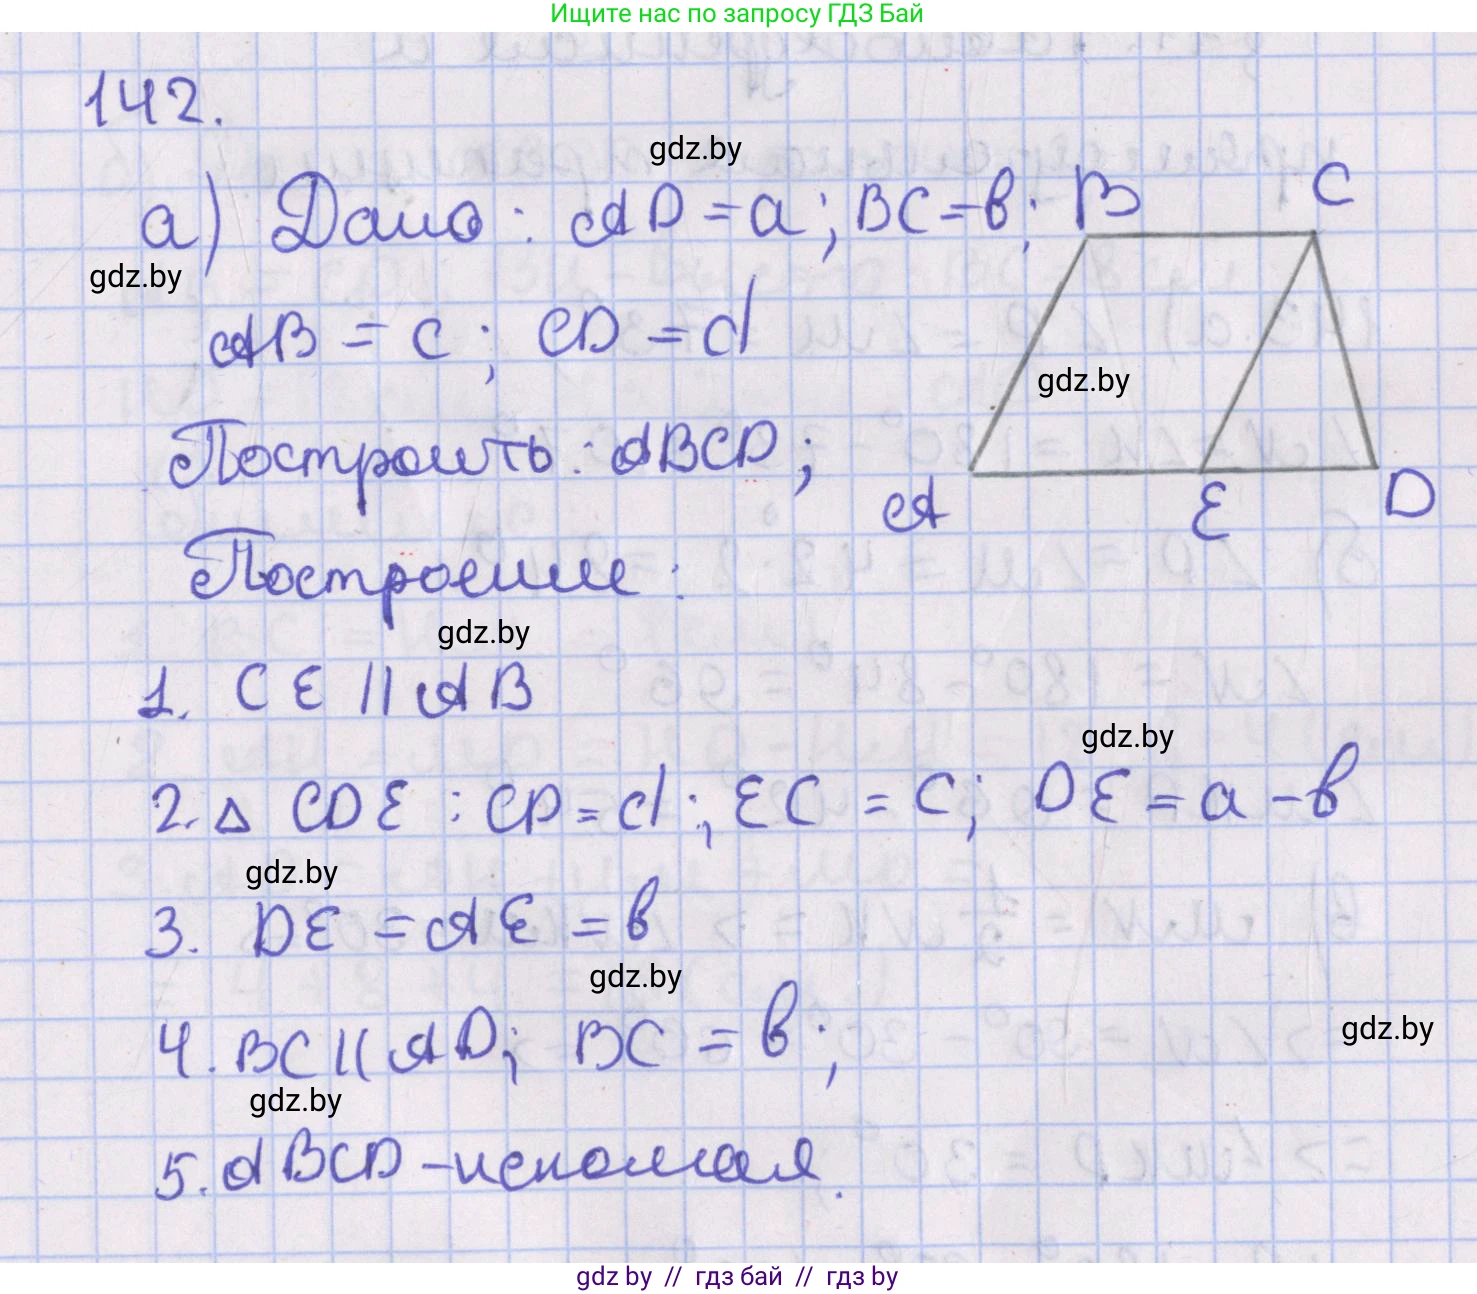 Ищите нас по запросу ГДЗ Бай
142.
gdz.by
а) Дано: AD = a; BC = b;
B C
gdz.by
AB = c; CD = d
gdz.by
Построить: ABCD;
A E D
Построение:
gdz.by
1. CE || AB
gdz.by
2. Δ CDE : CD = d; EC = c; DE = a - b
gdz.by
3. DE = AE = b
gdz.by
4. BC || AD; BC = b;
gdz.by
gdz.by
5. ABCD - искомая.
gdz by // гдз бай // гдз by